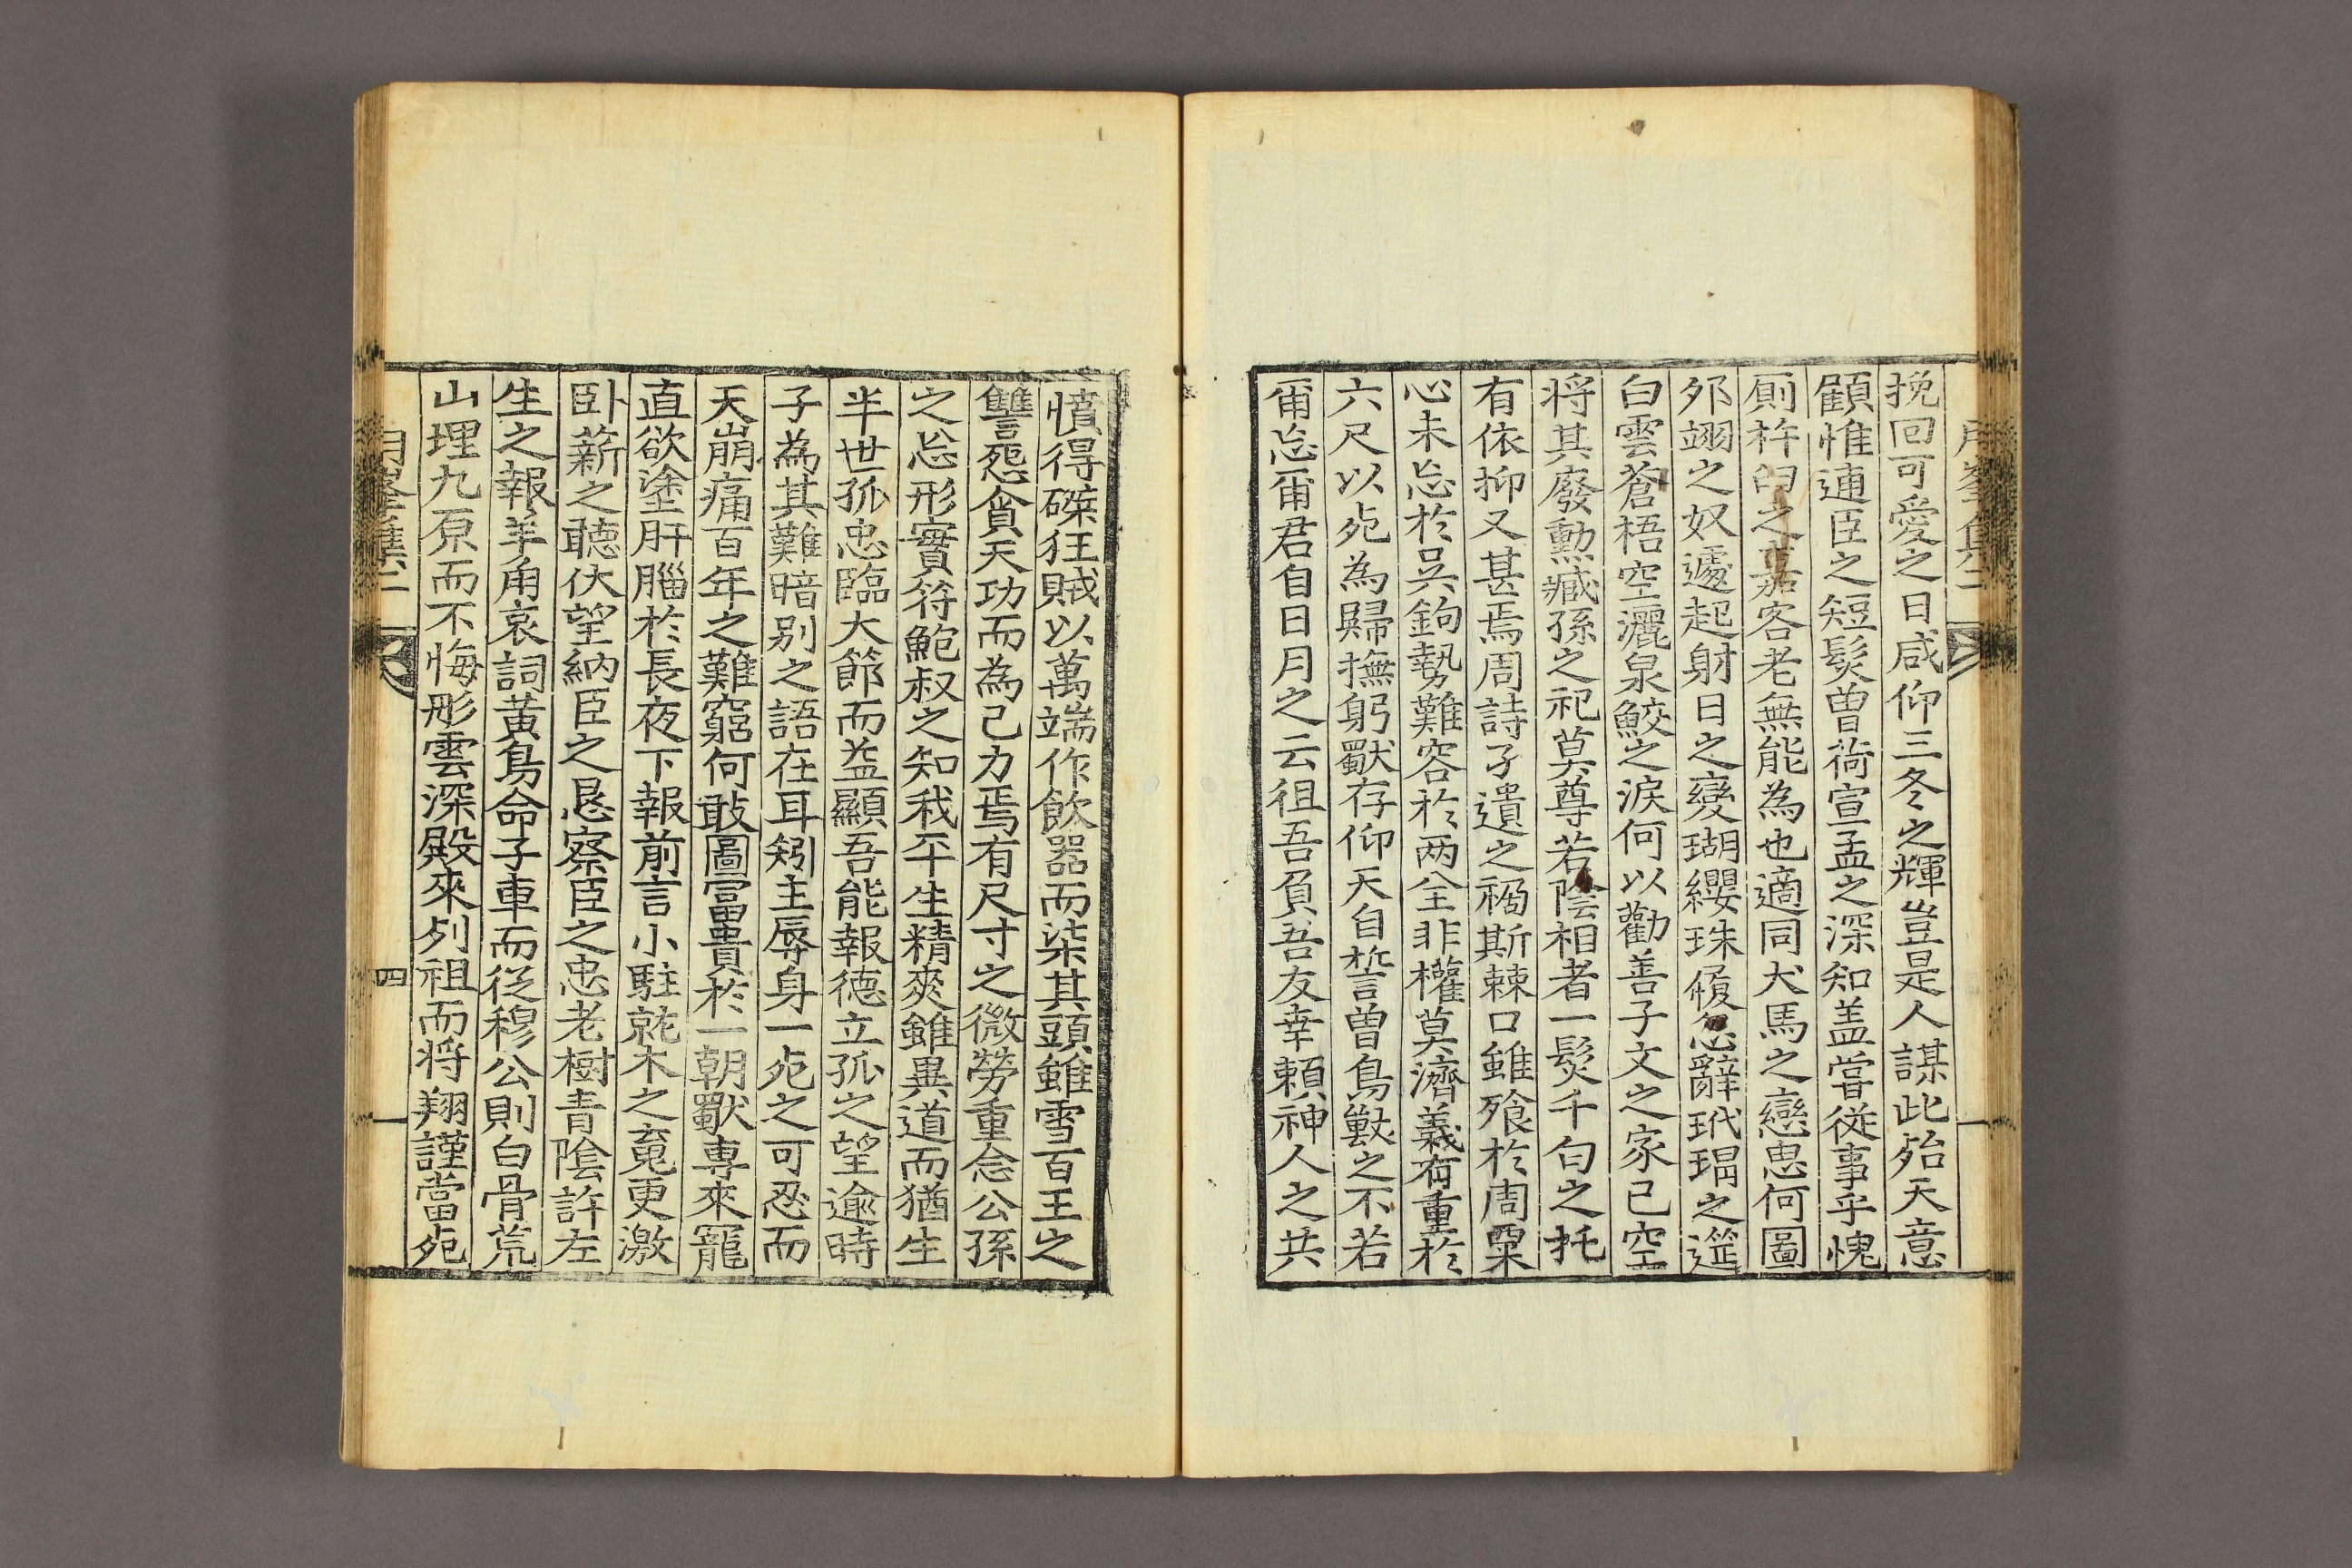 挽回可愛之日咸仰三冬之輝豈是人謀此殆天意
顧惟逋臣之短髮曾荷宣孟之深知盖嘗從事乎愧
厠杵臼之嘉客老無能爲也適同犬馬之戀思何圖
邠翊之奴遽起射日之變瑚纓珠履忽辭玳瑁之筵
白雲蒼梧空灑泉鮫之淚何以勸善子文之家已空
將其廢勳臧孫之祀莫尊若陰相者一髮千勻之托
有依抑又甚焉周詩孑遺之禍斯棘口雖飱於周粟
心未忘於吳鉤勢難容於兩全非權莫濟義有重於
六尺以死為歸撫躬獸存仰天自誓曾鳥獸之不若
甭忘甭君自日月之云徂吾負吾友幸賴神人之共
憤得磔狂賊以萬端作飲器而柒其頭雖雪百王之
讐怨貪天功而為己力焉有尺寸之微勞重念公孫
之忘形實符鮑叔之知我平生精爽雖異道而猶生
半世孤忠臨大節而益顯吾能報德立孤之望逾時
子為其難暗別之語在耳矧主辱身一死之可忍而
天崩痛百年之難窮何敢圖富貴於一朝獸專來寵
直欲塗肝腦於長夜下報前言小駐就木之寃更激
卧薪之聽伏望納臣之恳察臣之忠老樹青陰許左
生之報羊角哀詞黃鳥命子車而從穆公則白骨荒
山埋九原而不悔彤雲深殿來列祖而將翔謹當死
四